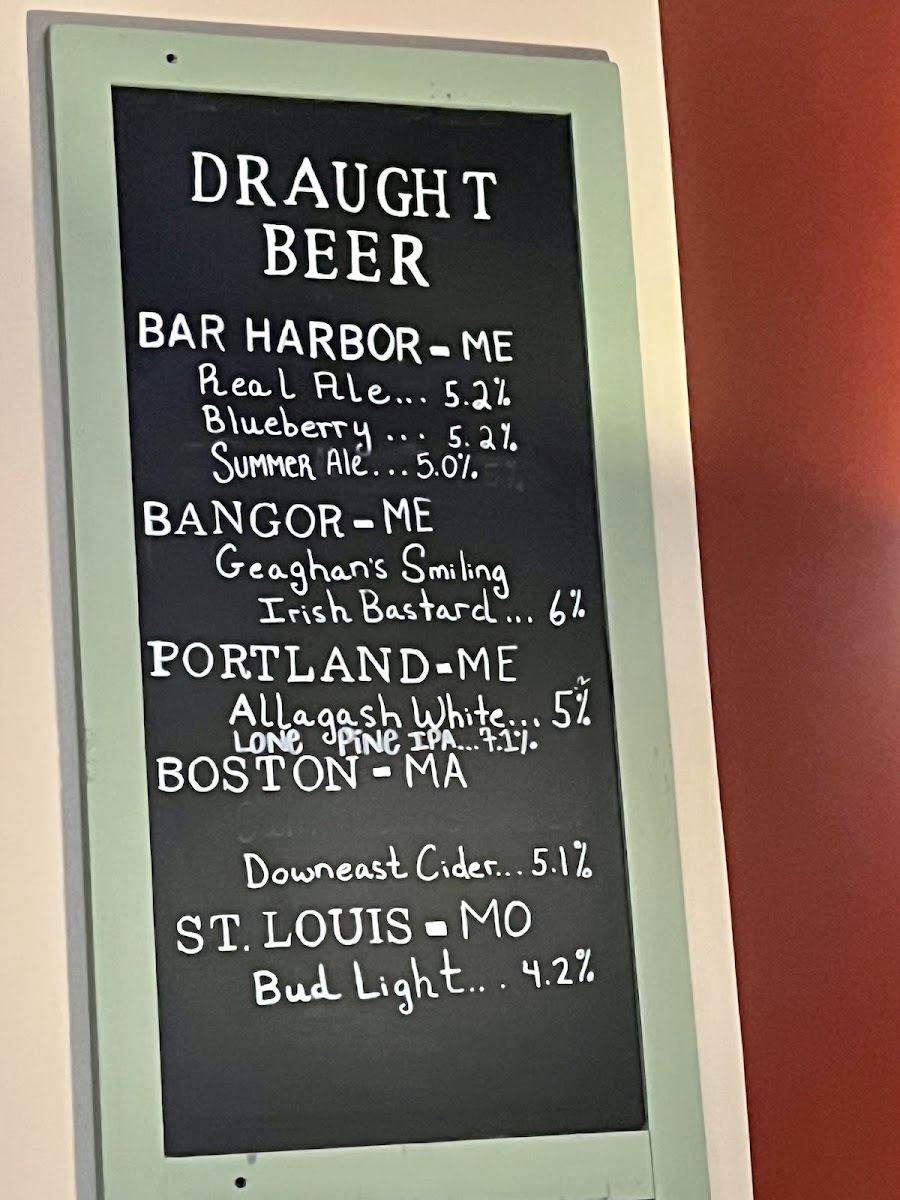 DRAUGHT
BEER
BAR HARBOR - ME
Real Ale... 5.2%
Blueberry ... 5.2%
SUMMER Ale... 5.0%
BANGOR - ME
Geaghan's Smiling
Irish Bastard... 6%
PORTLAND - ME
Allagash White... 5%
LONE PINE IPA...7.1%
BOSTON - MA
Downeast Cider... 5.1%
ST. LOUIS - MO
Bud Light... 4.2%